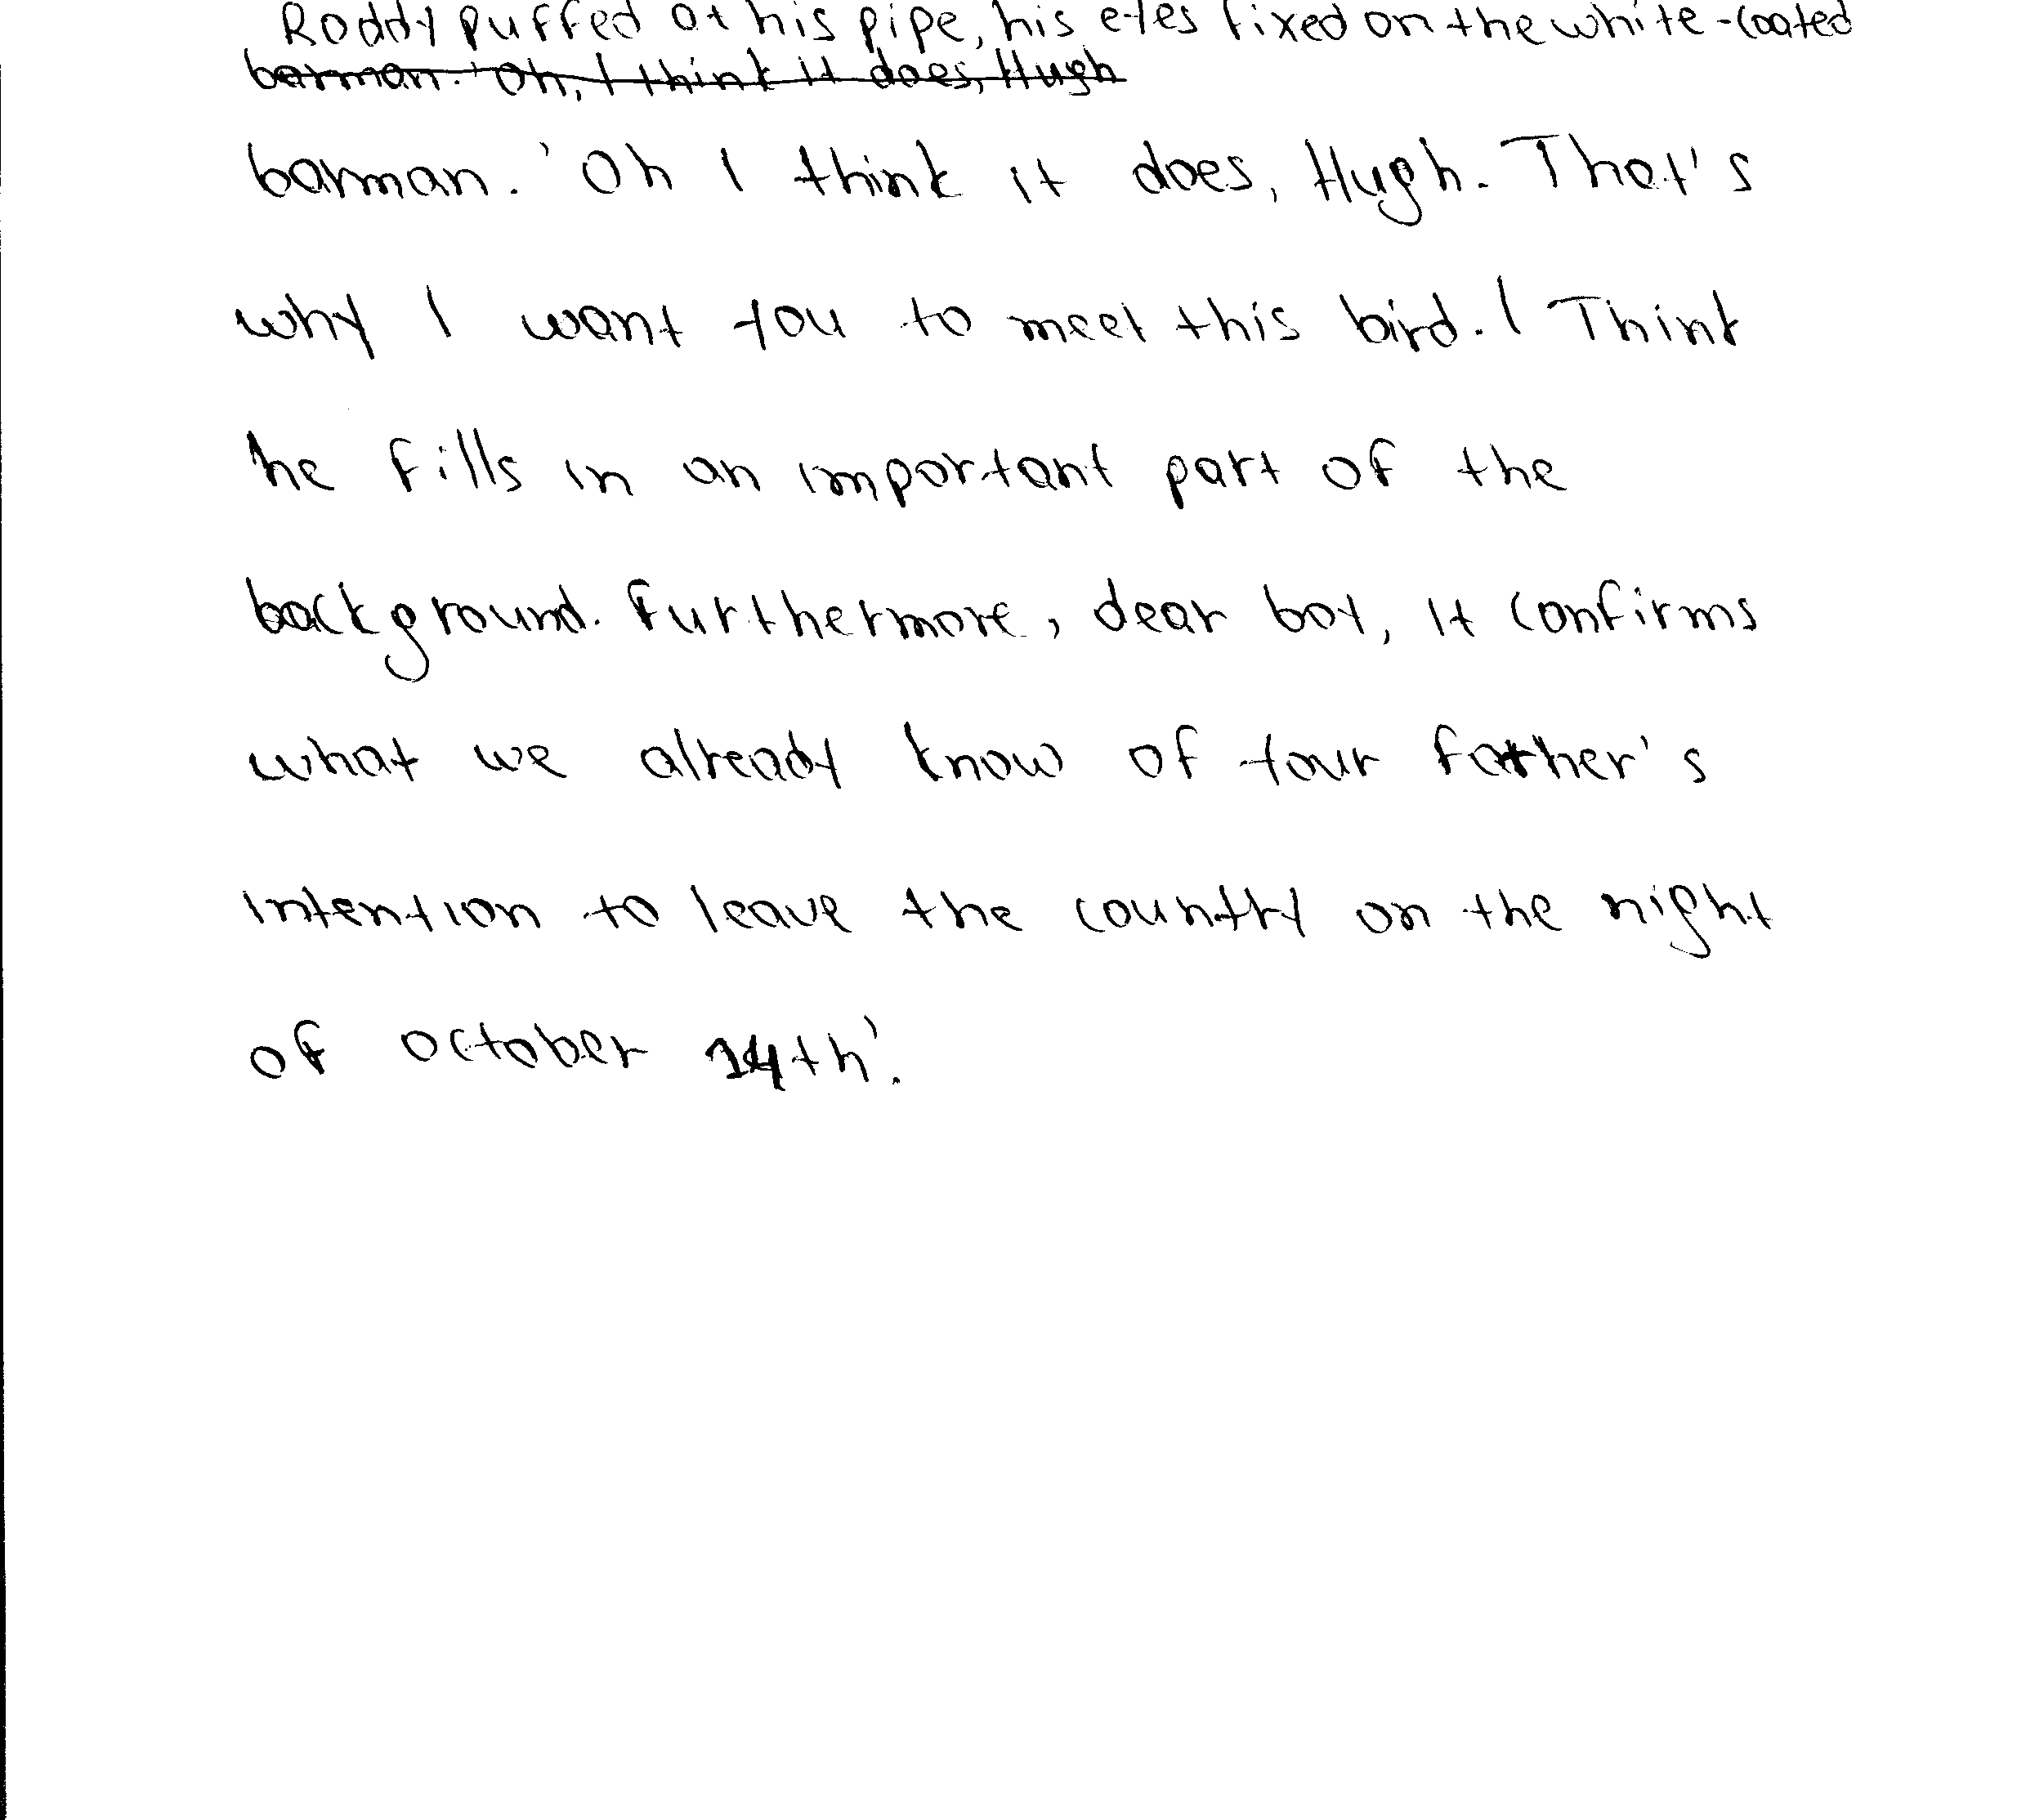 Roddy puffed at his pipe, his eyes fixed on the white-coated
barman. 'Oh, I think it does, Hugh
barman. 'Oh I think it does, Hugh. That's
why I want you to meet this bird. I Think
he fills in an important part of the
background. Furthermore, dear boy, It confirms
what we already know of your father's
intention to leave the country on the night
of October 14th'.